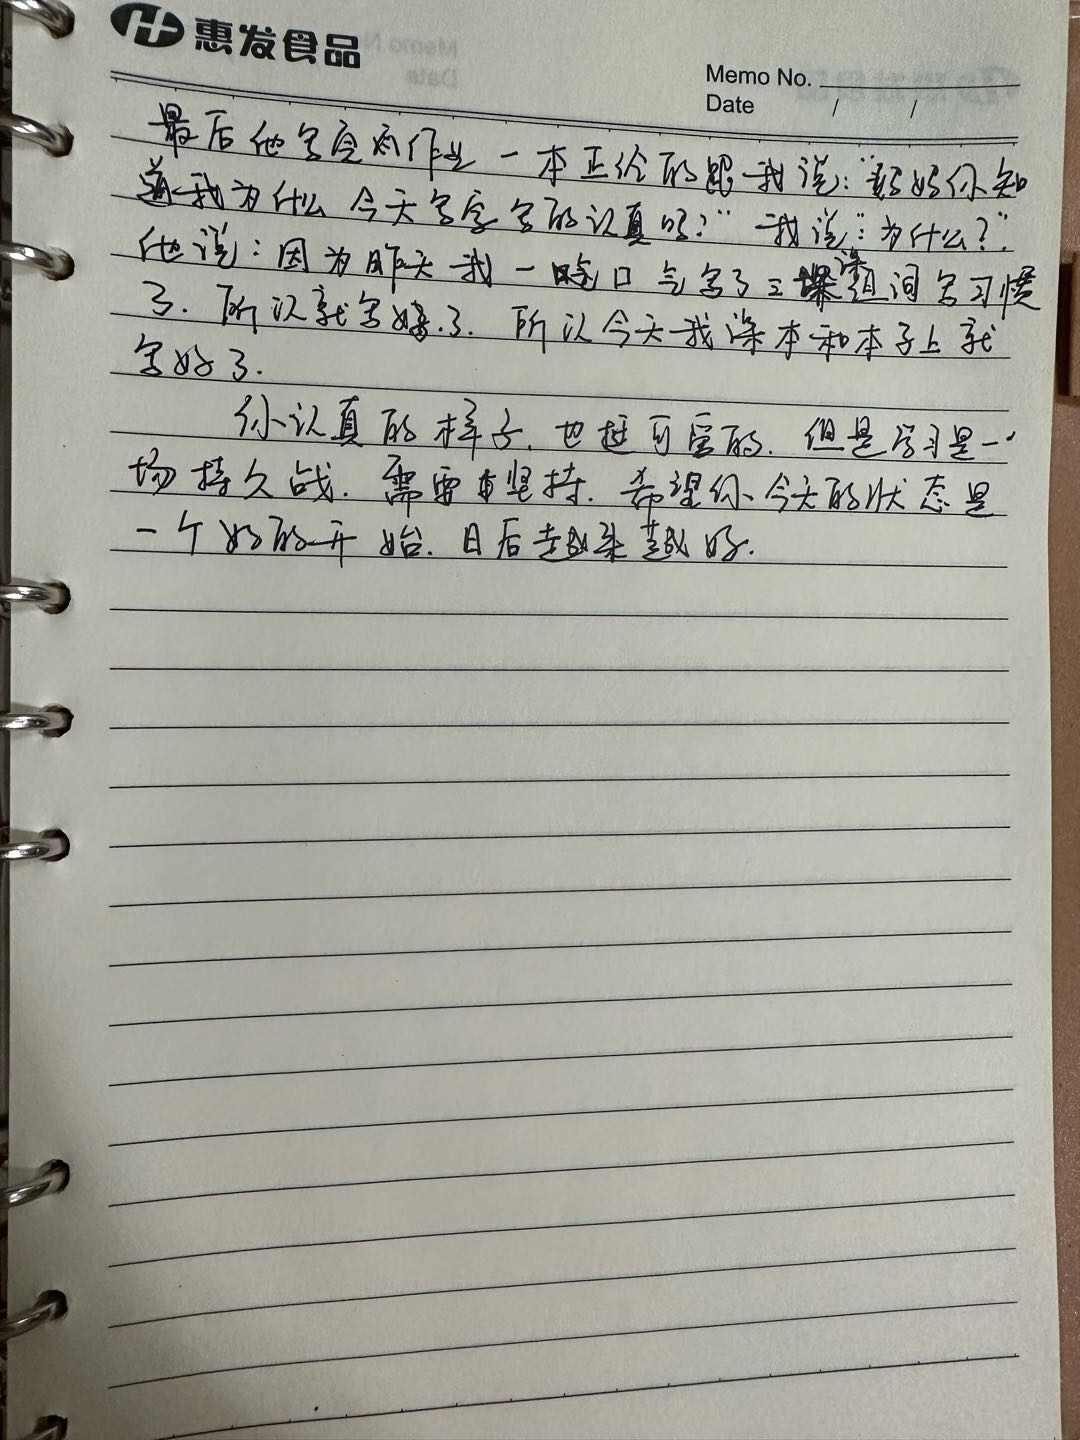 惠发食品
Memo No.
Date / /
最后他写完作业一本正经的跟我说:"妈妈你知
道我为什么今天写字写的认真吗?"我说:"为什么?".
他说:因为昨天我一口气写了三课词写习惯
了.所以就写好了.所以今天我课本和本子上就
写好了.
你认真的样子.也挺可爱的.但是学习是一
场持久战.需要坚持.希望你今天的状态是
一个好的开始.日后越来越好.